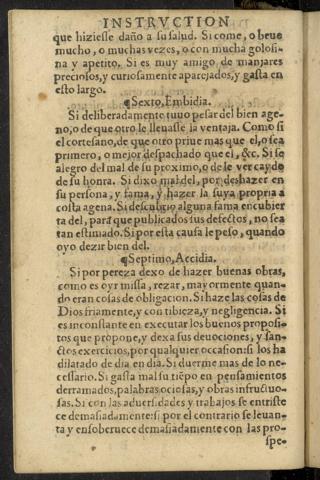 INSTRVCTION
que hiziesse daño a su salud. Si come, o beue
mucho, o muchas vezes, o con mucha golosi-
na y apetito. Si es muy amigo de manjares
preciosos, y curiosamente aparejados, y gasta en
esto largo.
¶Sexto, Embidia.
Si deliberadamente tuuo pesar del bien age-
no, o de que otro le lleuasse la ventaja. Como si
el cortesano, de que otro priue mas que el, o sea
primero, o mejor despachado que el, &c. Si se
alegro del mal de su proximo, o de le ver caydo
de su honra. Si dixo mal del, por deshazer en
su persona, y fama, y hazer la suya propria a
costa agena. Si descubrio alguna fama encubier
ta del, para que publicados sus defectos, no sea
tan estimado. Si por esta causa le peso, quando
oyo dezir bien del.
¶Septimo, Accidia.
Si por pereza dexo de hazer buenas obras,
como es oyr missa, rezar, mayormente quan-
do eran cosas de obligacion. Si haze las cosas de
Dios friamente, y con tibieza, y negligencia. Si
es inconstante en executar los buenos proposi-
tos que propone, y dexa sus deuociones, y san-
ctos exercicios, por qualquier occasion: si los ha
dilatado de dia en dia. Si duerme mas de lo ne-
cessario. Si gasta mal su tiẽpo en pensamientos
derramados, palabras ociosas, y obras infructuo-
sas. Si con las aduersidades y trabajos se entriste
ce demasiadamente: si por el contrario se leuan-
ta y ensoberuece demasiadamente con las pro-
spe-